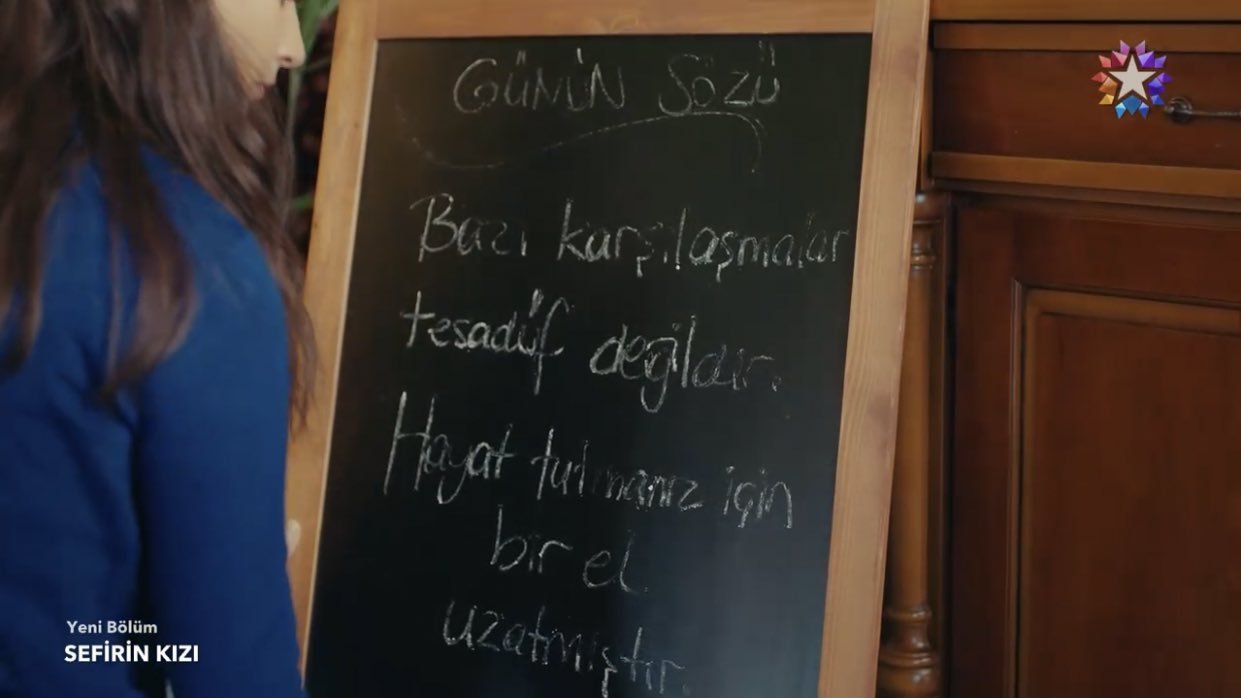 GÜNÜN SÖZÜ
Bazı karşılaşmalar
tesadüf değildir.
Hayat tutmanız için
bir el
uzatmıştır.
Yeni Bölüm
SEFİRİN KIZI